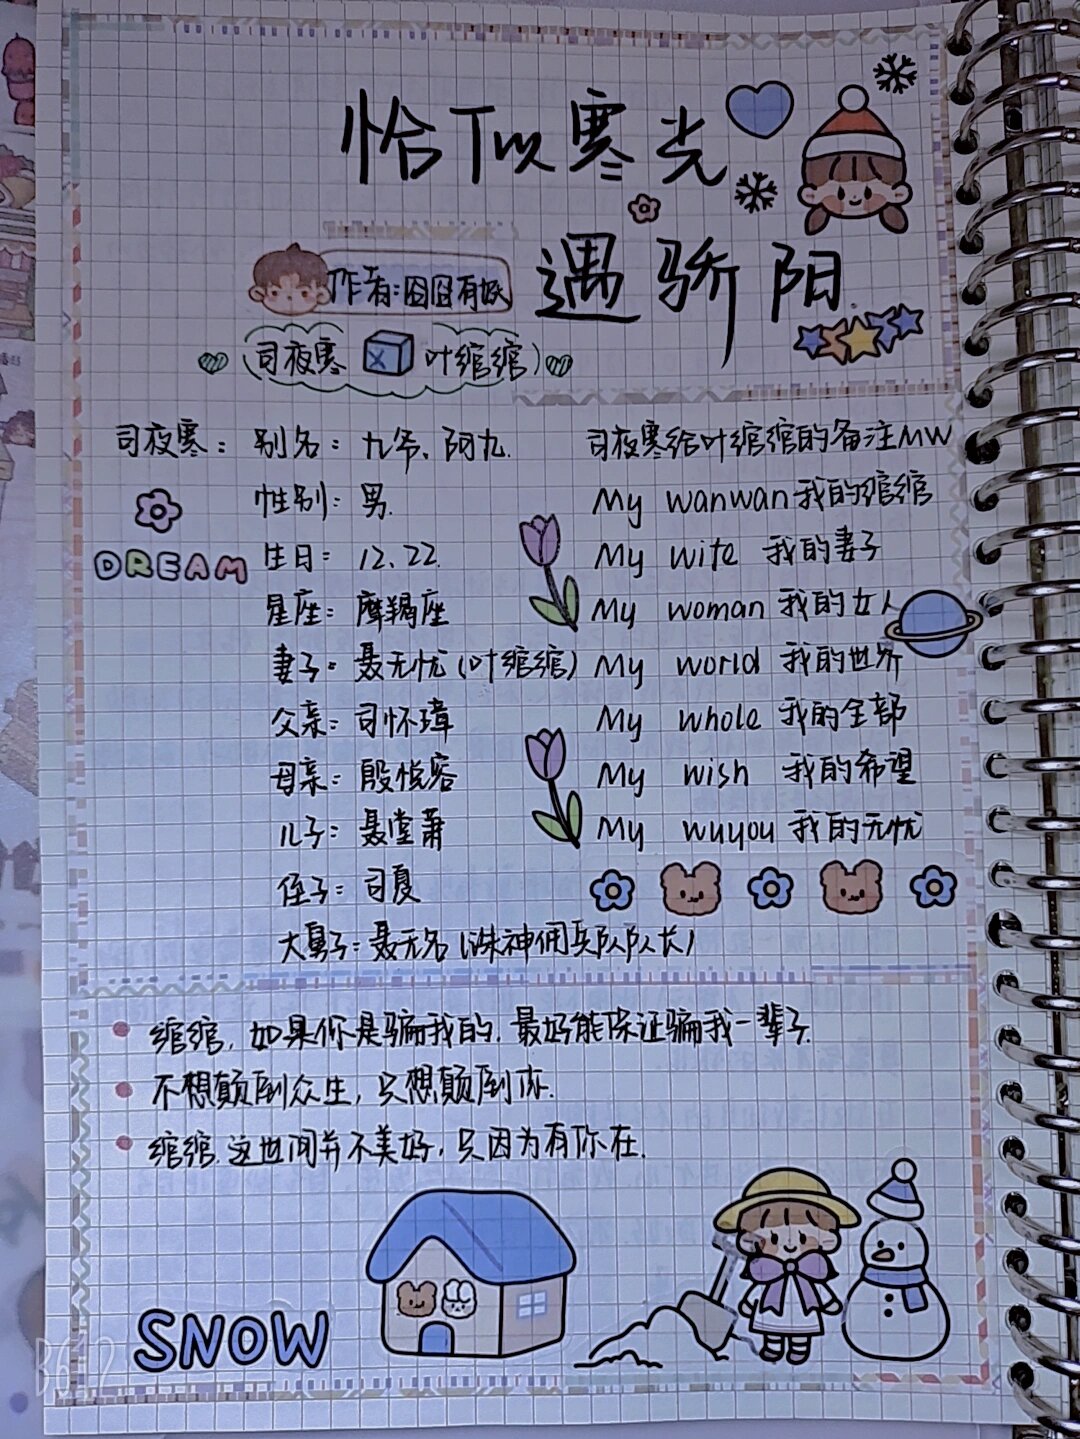 恰似寒光
遇骄阳
作者:囧囧有妖
司夜寒 X 叶绾绾
司夜寒: 别名: 九爷、阿九.
性别: 男.
DREAM
生日: 12.22.
星座: 摩羯座
妻子: 聂无忧(叶绾绾)
父亲: 司怀璋
母亲: 殷悦容
儿子: 聂堂萧
侄子: 司夏
大舅子: 聂无名(诛神佣兵队队长)
司夜寒给叶绾绾的备注MW
My wanwan 我的绾绾
My wife 我的妻子
My woman 我的女人
My world 我的世界
My whole 我的全部
My wish 我的希望
My wuyou 我的无忧
绾绾, 如果你是骗我的, 最好能保证骗我一辈子.
不想颠倒众生, 只想颠倒你.
绾绾, 这世间并不美好, 只因为有你在.
SNOW
B612